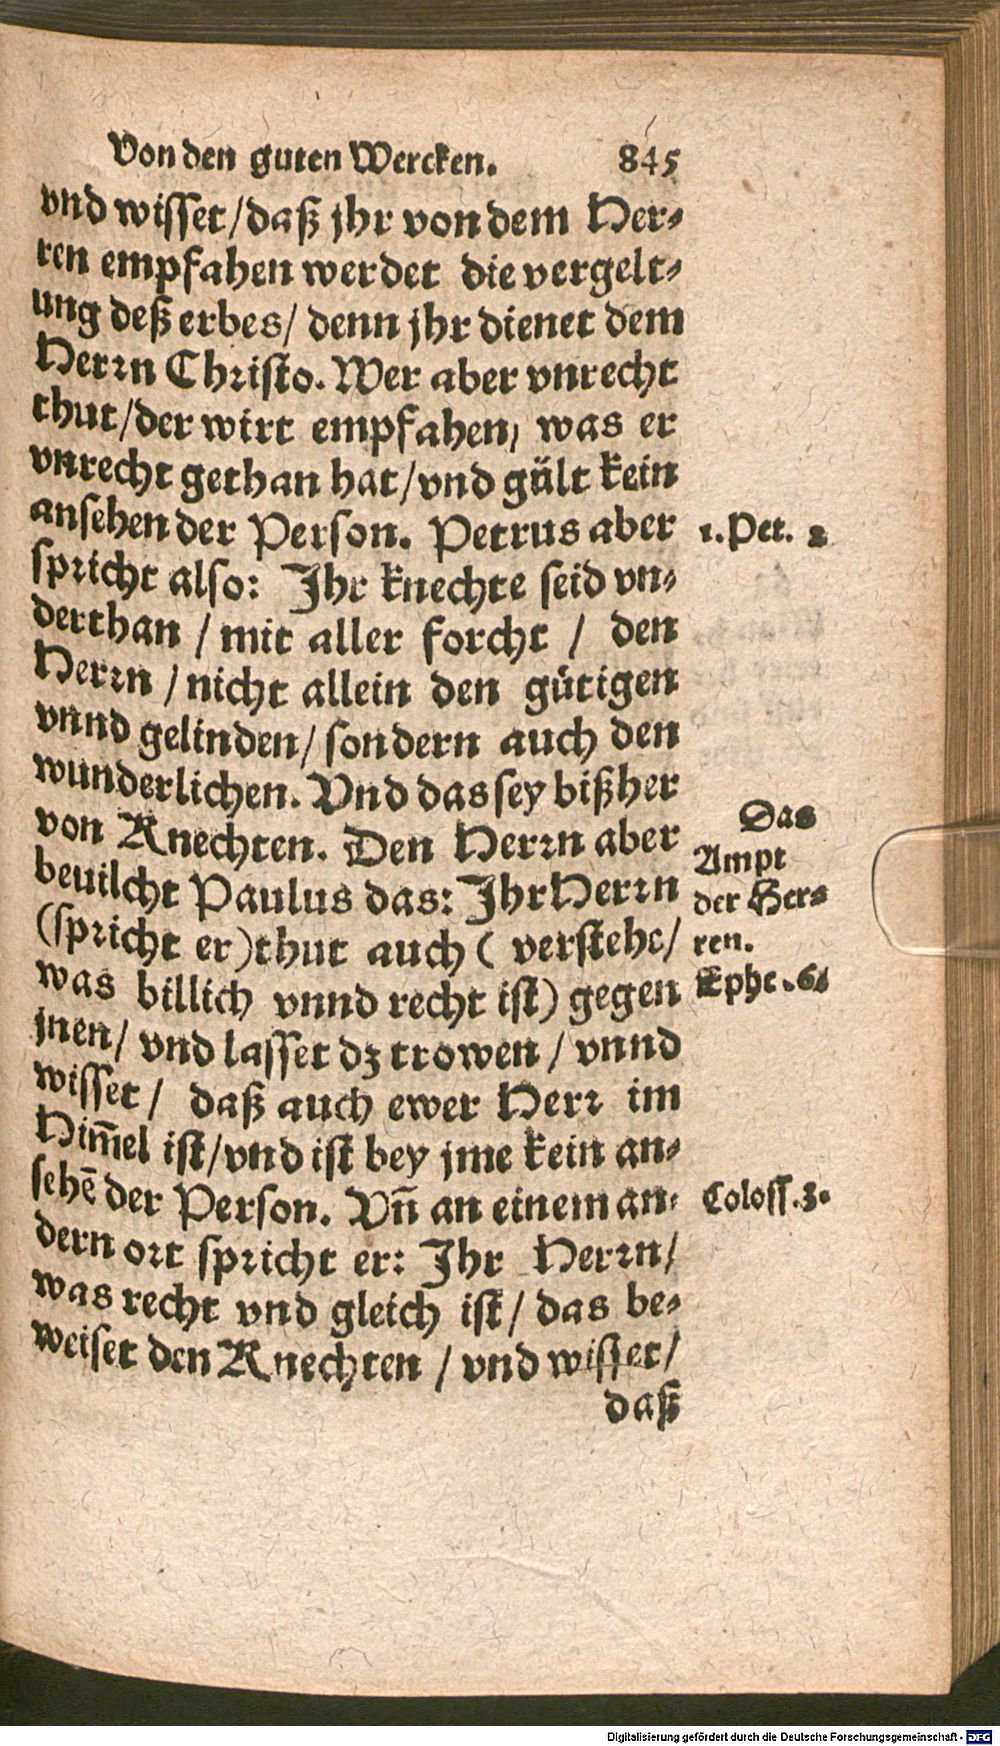 Von den guten Wercken. 845
vnd wisset/daß jhr von dem Her⸗
ren empfahen werdet die vergelt⸗
ung deß erbes/ denn jhr dienet dem
Herrn Christo. Wer aber vnrecht
thut/der wirt empfahen, was er
vnrecht gethan hat/vnd gält kein
ansehen der Person. Petrus aber
1. Pet. 2
spricht also: Ihr knechte seid vn⸗
derthan / mit aller forcht / den
Herrn / nicht allein den gütigen
vnnd gelinden/ sondern auch den
wunderlichen. Vnd das sey bißher
von Knechten. Den Herrn aber
beuilcht Paulus das: Ihr Herrn
(spricht er) thut auch ( verstehe/
was billich vnnd recht ist) gegen
jnen/ vnd lasset dz trowen / vnnd
wisset / daß auch ewer Herr im
Him̄el ist/vnd ist bey jme kein an⸗
sehē der Person. Vn̄ an einem an⸗
dern ort spricht er: Ihr Herrn/
was recht vnd gleich ist / das be⸗
weiset den Knechten / vnd wisset/
daß
Das
Ampt
der Her⸗
ren.
Ephe. 6.
Coloss. 3.
Digitalisierung gefördert durch die Deutsche Forschungsgemeinschaft - DFG